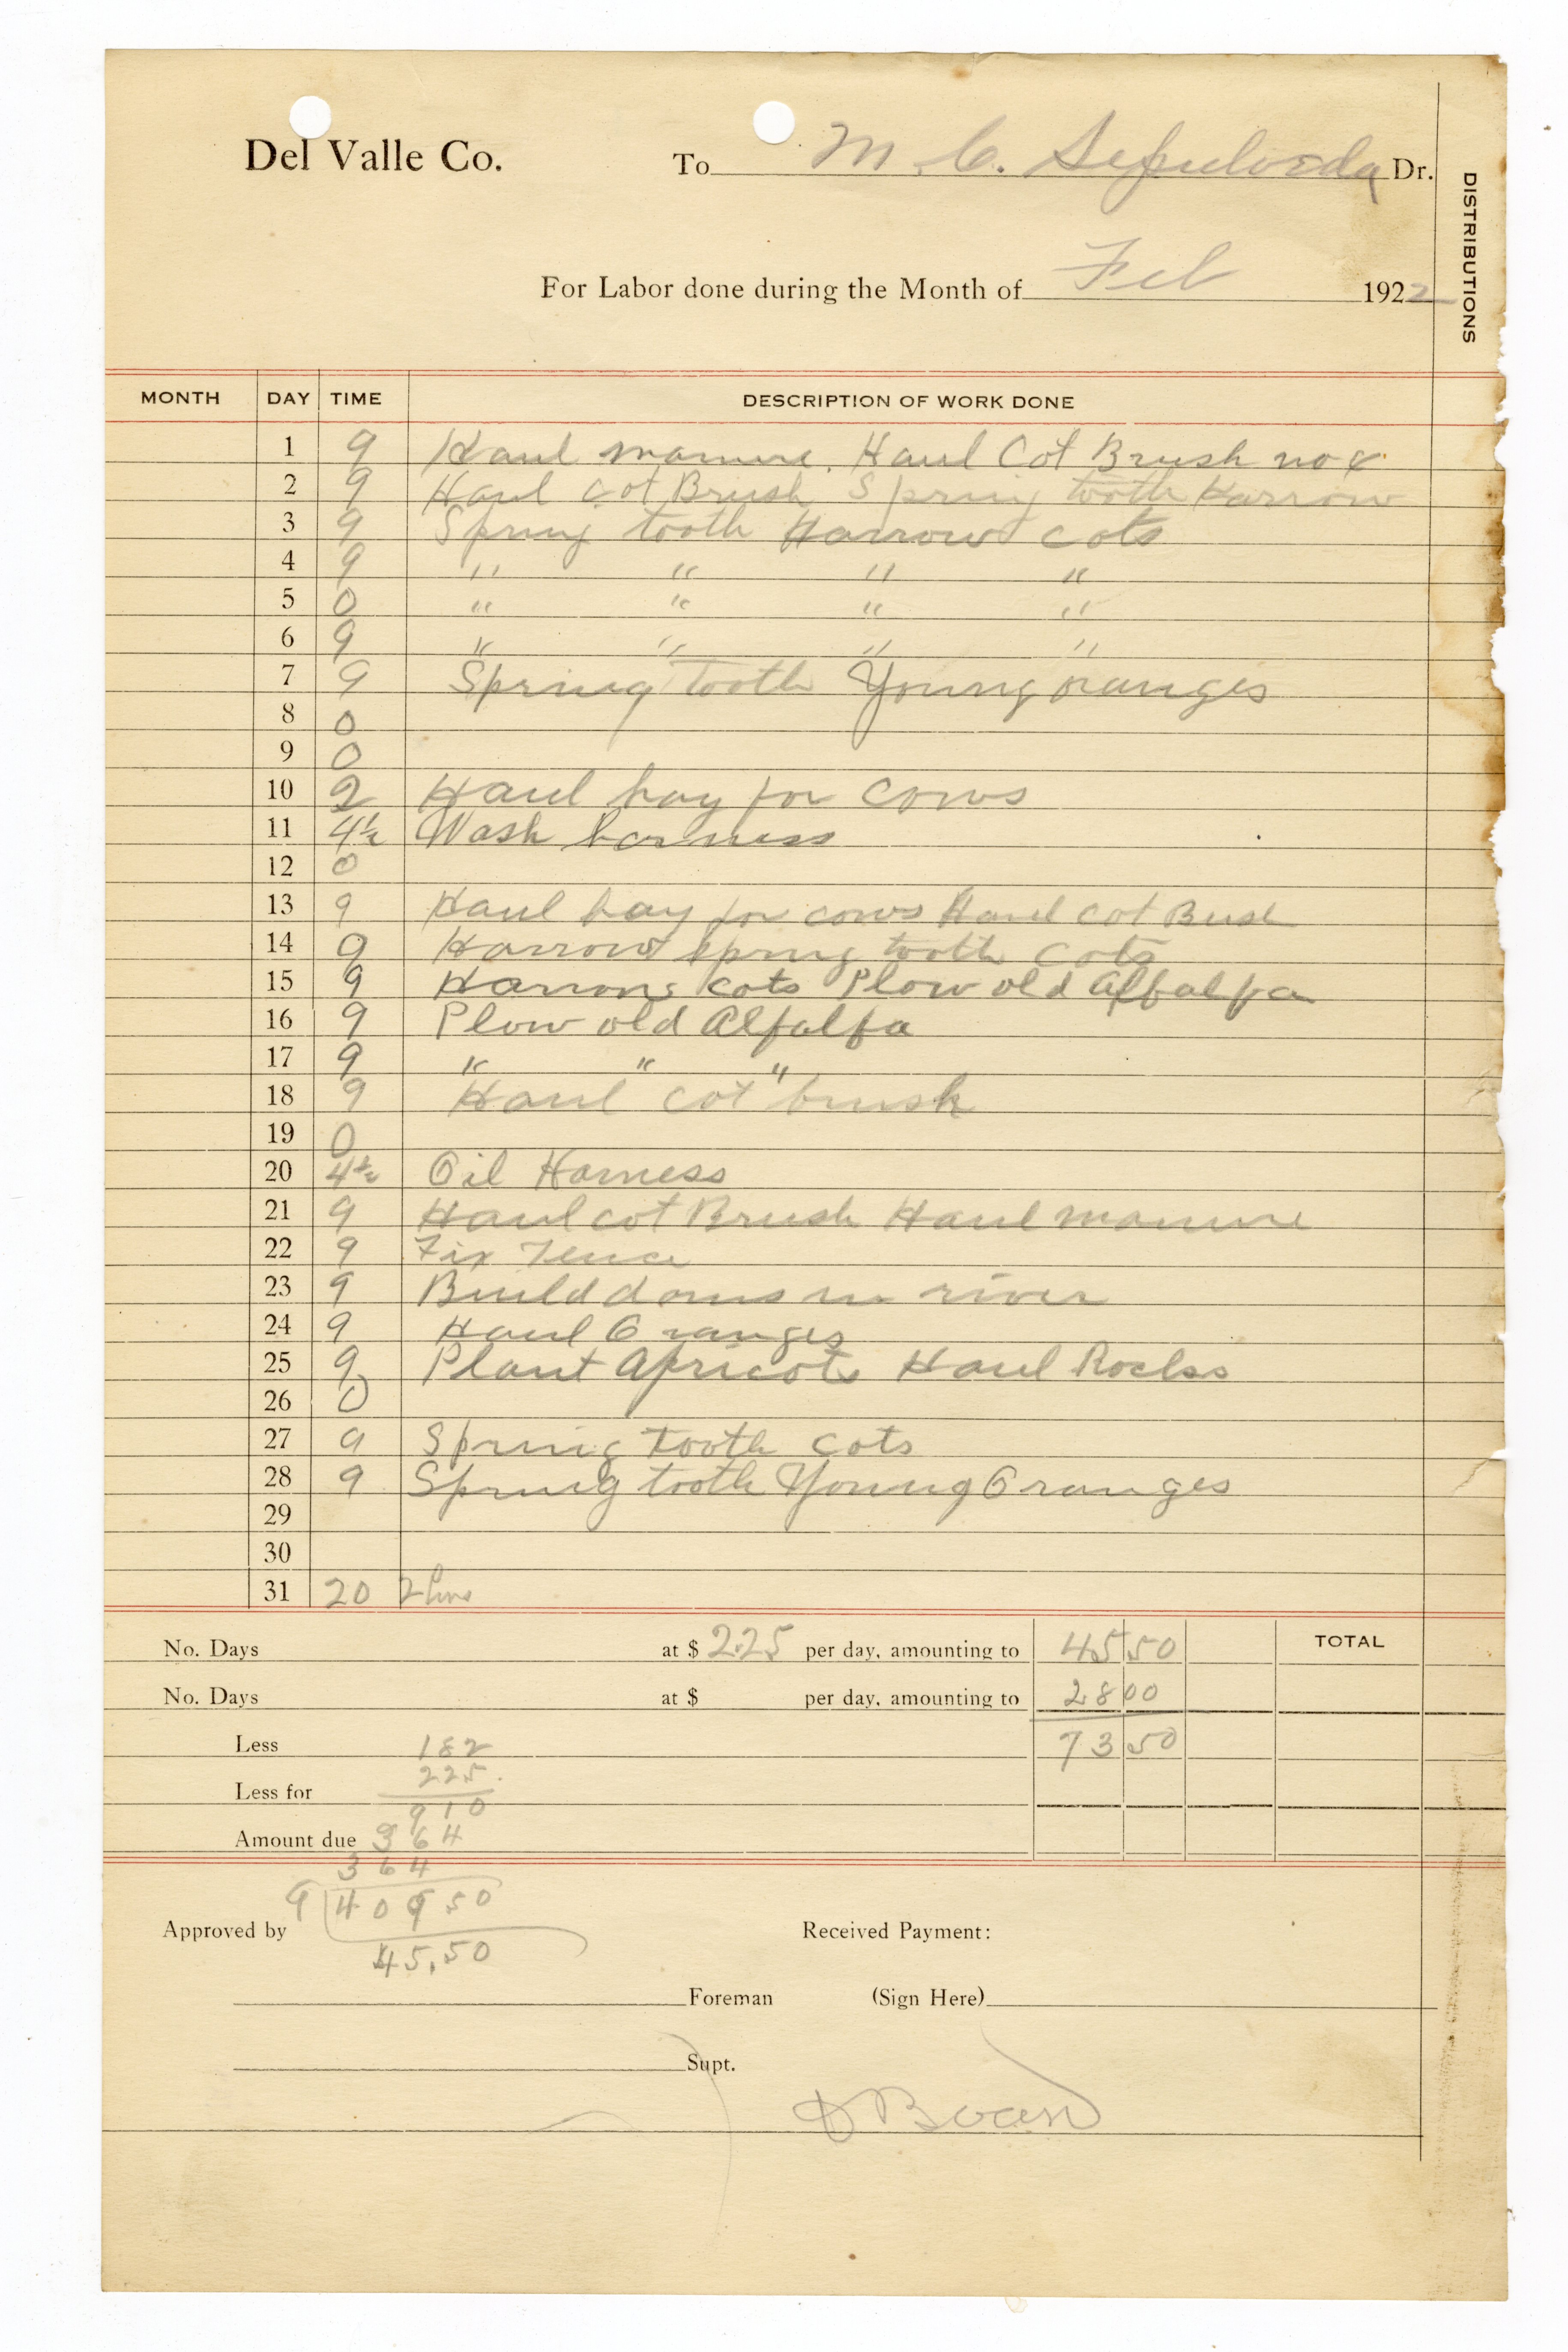 Del Valle Co. To M. C. Sepulveda Dr.
DISTRIBUTIONS
For Labor done during the Month of Feb 1922
MONTH DAY TIME DESCRIPTION OF WORK DONE
1 9 Haul manure. Haul Cot Brush no
2 9 Haul cot Brush Spring tooth Harrow
3 9 Spring tooth Harrow cots
4 9 " " " "
5 0 " " " "
6 9 " " " "
7 9 Spring Tooth Young oranges
8 0
9 0
10 2 Haul hay for cows
11 4½ Wash harness
12 0
13 9 Haul hay for cows Haul cot Bush
14 9 Harrow spring tooth cots
15 9 Harrow cots Plow old Alfalfa
16 9 Plow old Alfalfa
17 9 " " "
18 9 Haul cot brush
19 0
20 4½ Oil Harness
21 9 Haul cot Brush Haul manure
22 9 Fix Fence
23 9 Build dams in river
24 9 Haul Oranges
25 9 Plant Apricots Haul Rocks
26 0
27 9 Spring tooth cots
28 9 Spring tooth Young Oranges
29
30
31 20 2 hrs
No. Days at $ 2.25 per day, amounting to 45 50 TOTAL
No. Days at $ per day, amounting to 28 00
Less 182 73 50
225
Less for
910
Amount due 364
364
9 40950
Approved by Received Payment:
45.50
Foreman (Sign Here)
Supt.